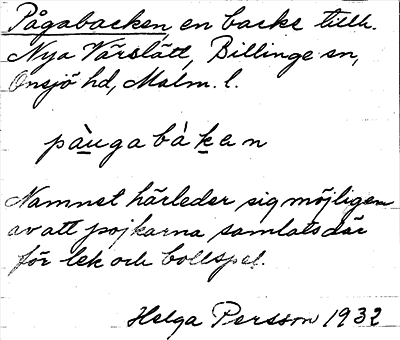 Pågabacken, en backe tillh.
Nya Värslätt, Billinge sn,
Onsjö hd, Malm. l.
pàugabàkan
Namnet härleder sig möjligen
av att pojkarna samlats där
för lek och bollspel.
Helga Persson 1932